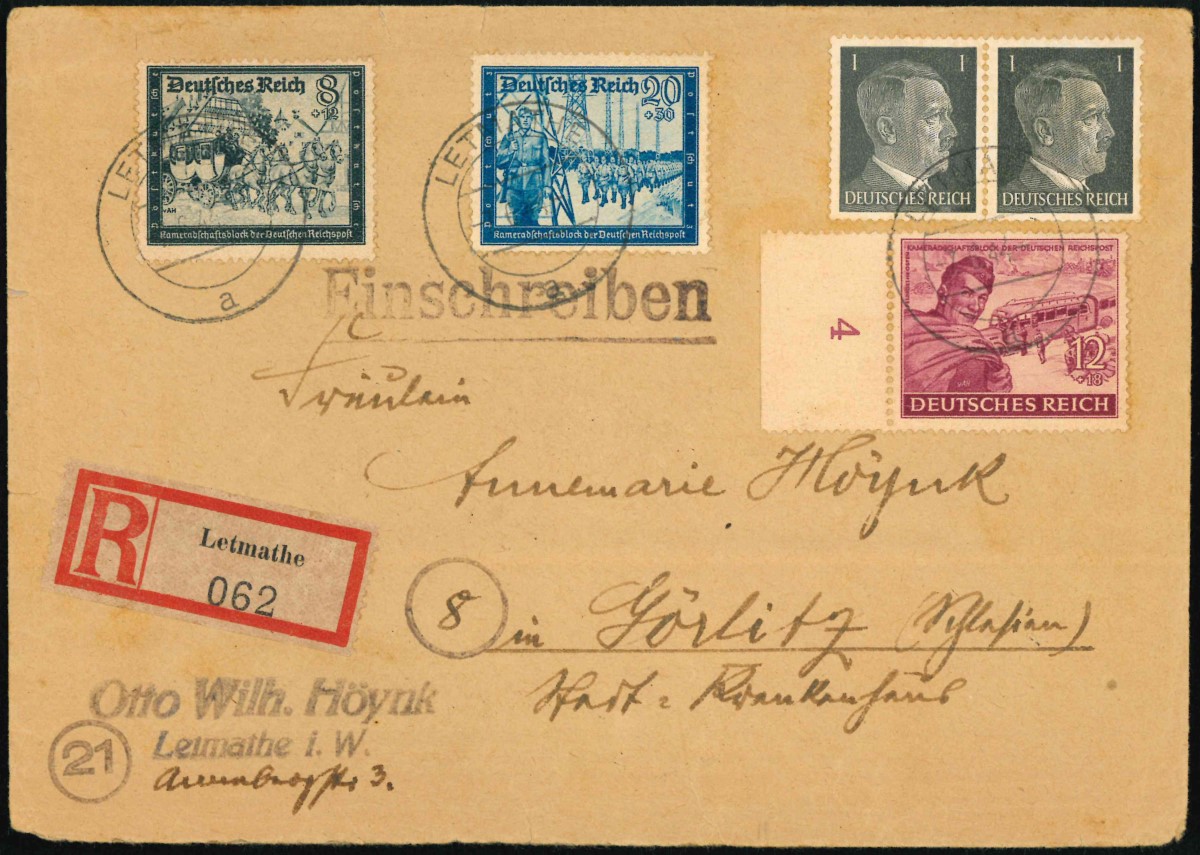 Deutsches Reich 8
+12
Postschutz
Postschutz
vAH
Kameradschaftsblock der Deutschen Reichspost
Deutsches Reich 20
+30
Postschutz
Postschutz
Kameradschaftsblock der Deutschen Reichspost
1
DEUTSCHES REICH
1
DEUTSCHES REICH
KAMERADSCHAFTSBLOCK DER DEUTSCHEN REICHSPOST
4
12
+18
DEUTSCHES REICH
a
a
Einschreiben
Fräulein
Annemarie Höynk
8 in Görlitz (Schlesien)
Stadt-Krankenhaus
R
Letmathe
062
Otto Wilh. Höynk
21 Letmathe i. W.
3.